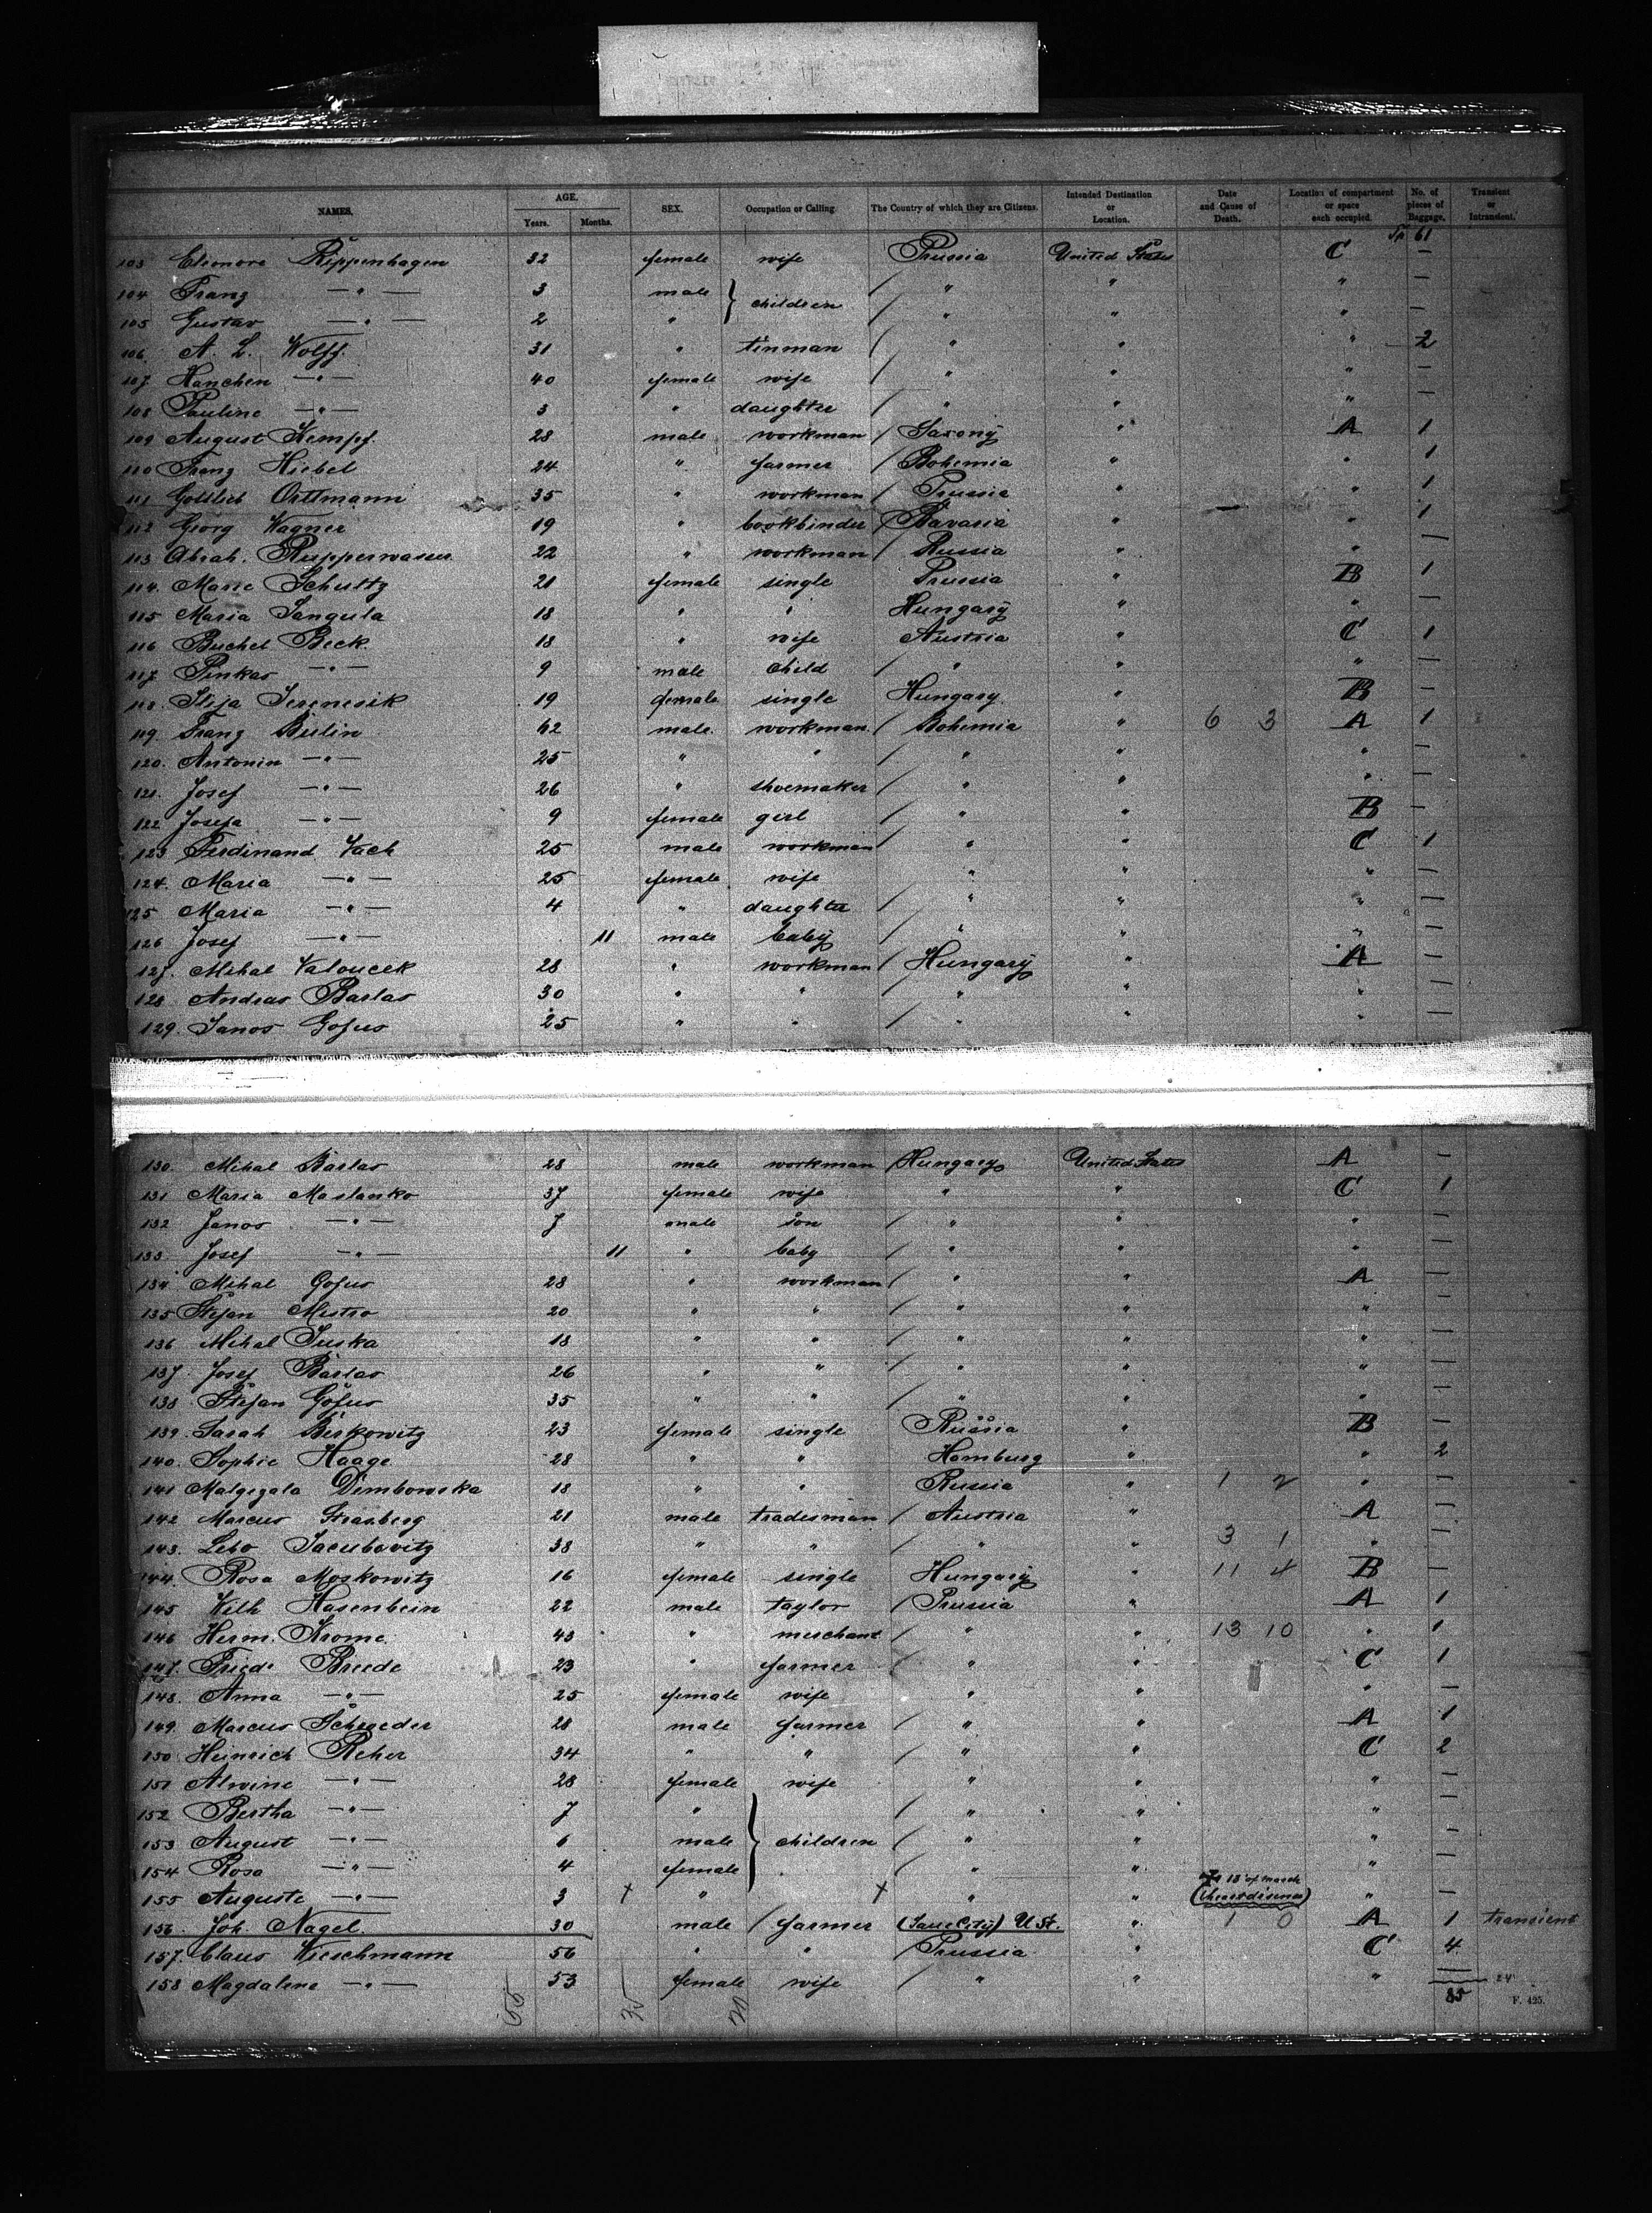 NAMES. AGE. Years. Months. SEX. Occupation or Calling. The Country of which they are Citizens. Intended Destination or Location. Date and Cause of Death. Location of compartment or space each occupied. No. of pieces of Baggage. Transient or Intransient.
61
103 Eleonore Rippenhagen 32 female wife Prussia United States C —
104 Franz —"— 3 male } children / " " " —
105 Gustav —"— 2 " / " " " —
106. A. L. Wolff. 31 " tinman / " " " 2
107 Hanchen —"— 40 female wife / " " " —
108 Pauline —"— 3 " daughter / " " " —
109 August Kempf. 28 male workman / Saxony " A 1
110 Franz Hiebel 24 " farmer / Bohemia " " 1
111 Gottlieb Ortmann 35 " workman / Prussia " " 1
112 Georg Wagner 19 " bookbinder / Bavaria " " 1
113 Abrah. Rupperwasser 22 " workman / Russia " " —
114. Marie Schultz 21 female single Prussia " B 1
115 Maria Sangula 18 " " Hungary " " —
116 Buchel Beck. 18 " wife Austria " C 1
117 Pinkas —"— 9 male child / " " " —
118. Ilija 19 female single Hungary " B —
119. Franz Bielin 42 male. workman / Bohemia " 6 3 A 1
120. Antonin —"— 25 " " / " " " —
121. Josef —"— 26 " shoemaker / " " " —
122 Josefa —"— 9 female girl / " " B —
123 Ferdinand Vach 25 male workman / " " C 1
124. Maria —"— 25 female wife / " " " —
125 Maria —"— 4 " daughter / " " " —
126 Josef —"— 11 male baby / " " " —
127. Mihal Valoucek 28 " workman / Hungary " A —
128 Andras Barlas 30 " " / " " " —
129. Janos Gofus 25 " " / " " " —
130. Mihal Barlas 28 male workman / Hungary United States A —
131 Maria Maslanko 37 female wife " " C 1
132 Janos —"— 7 male son / " " " —
133. Josef —"— 11 " baby / " " " —
134 Mihal Gofus 28 " workman / " " A —
135 Stefan Mistro 20 " " / " " " —
136 Mihal Juska 18 " " / " " " —
137. Josef Barlas 26 " " / " " " —
138 Stefan Gofus 35 " " / " " " —
139. Sarah Berkowitz 23 female single Russia " B —
140. Sophie Haage 28 " " Hamburg " " 2
141 Malgezala Dembowska 18 " " Russia " 1 2 " —
142 Marcus Strasberg 21 male tradesman / Austria " A —
143. Lebo Jacubovitz 38 " " / " " 3 1 " —
144. Rosa Moskowitz 16 female single Hungary " 11 4 B —
145 Wilh Hasenbein 22 male taylor / Prussia " A 1
146 Herm. Krome. 43 " merchant / " " 13 10 " 1
147. Friedr Breede 23 " farmer / " " C 1
148. Anna —"— 25 female wife " " " —
149. Marcus Schroeder 28 male farmer / " " A 1
150 Heinrich Reher 34 " " / " " C 2
151 Alwine —"— 28 female wife " " " —
152 Bertha —"— 7 " } children / " " " —
153 August —"— 6 male / " " " —
154 Rosa —"— 4 female / " " " —
155 Auguste —"— 3 + " + " " 13 of march (heartdisease) " —
156. Joh. Nagel. 30 male / farmer (Saue City) U. St. " 1 0 A 1 transient
157. Claus Wieschmann 56 " " Prussia " C 4
158 Magdalena —"— 53 female wife / " " " —
24
85
F. 425.